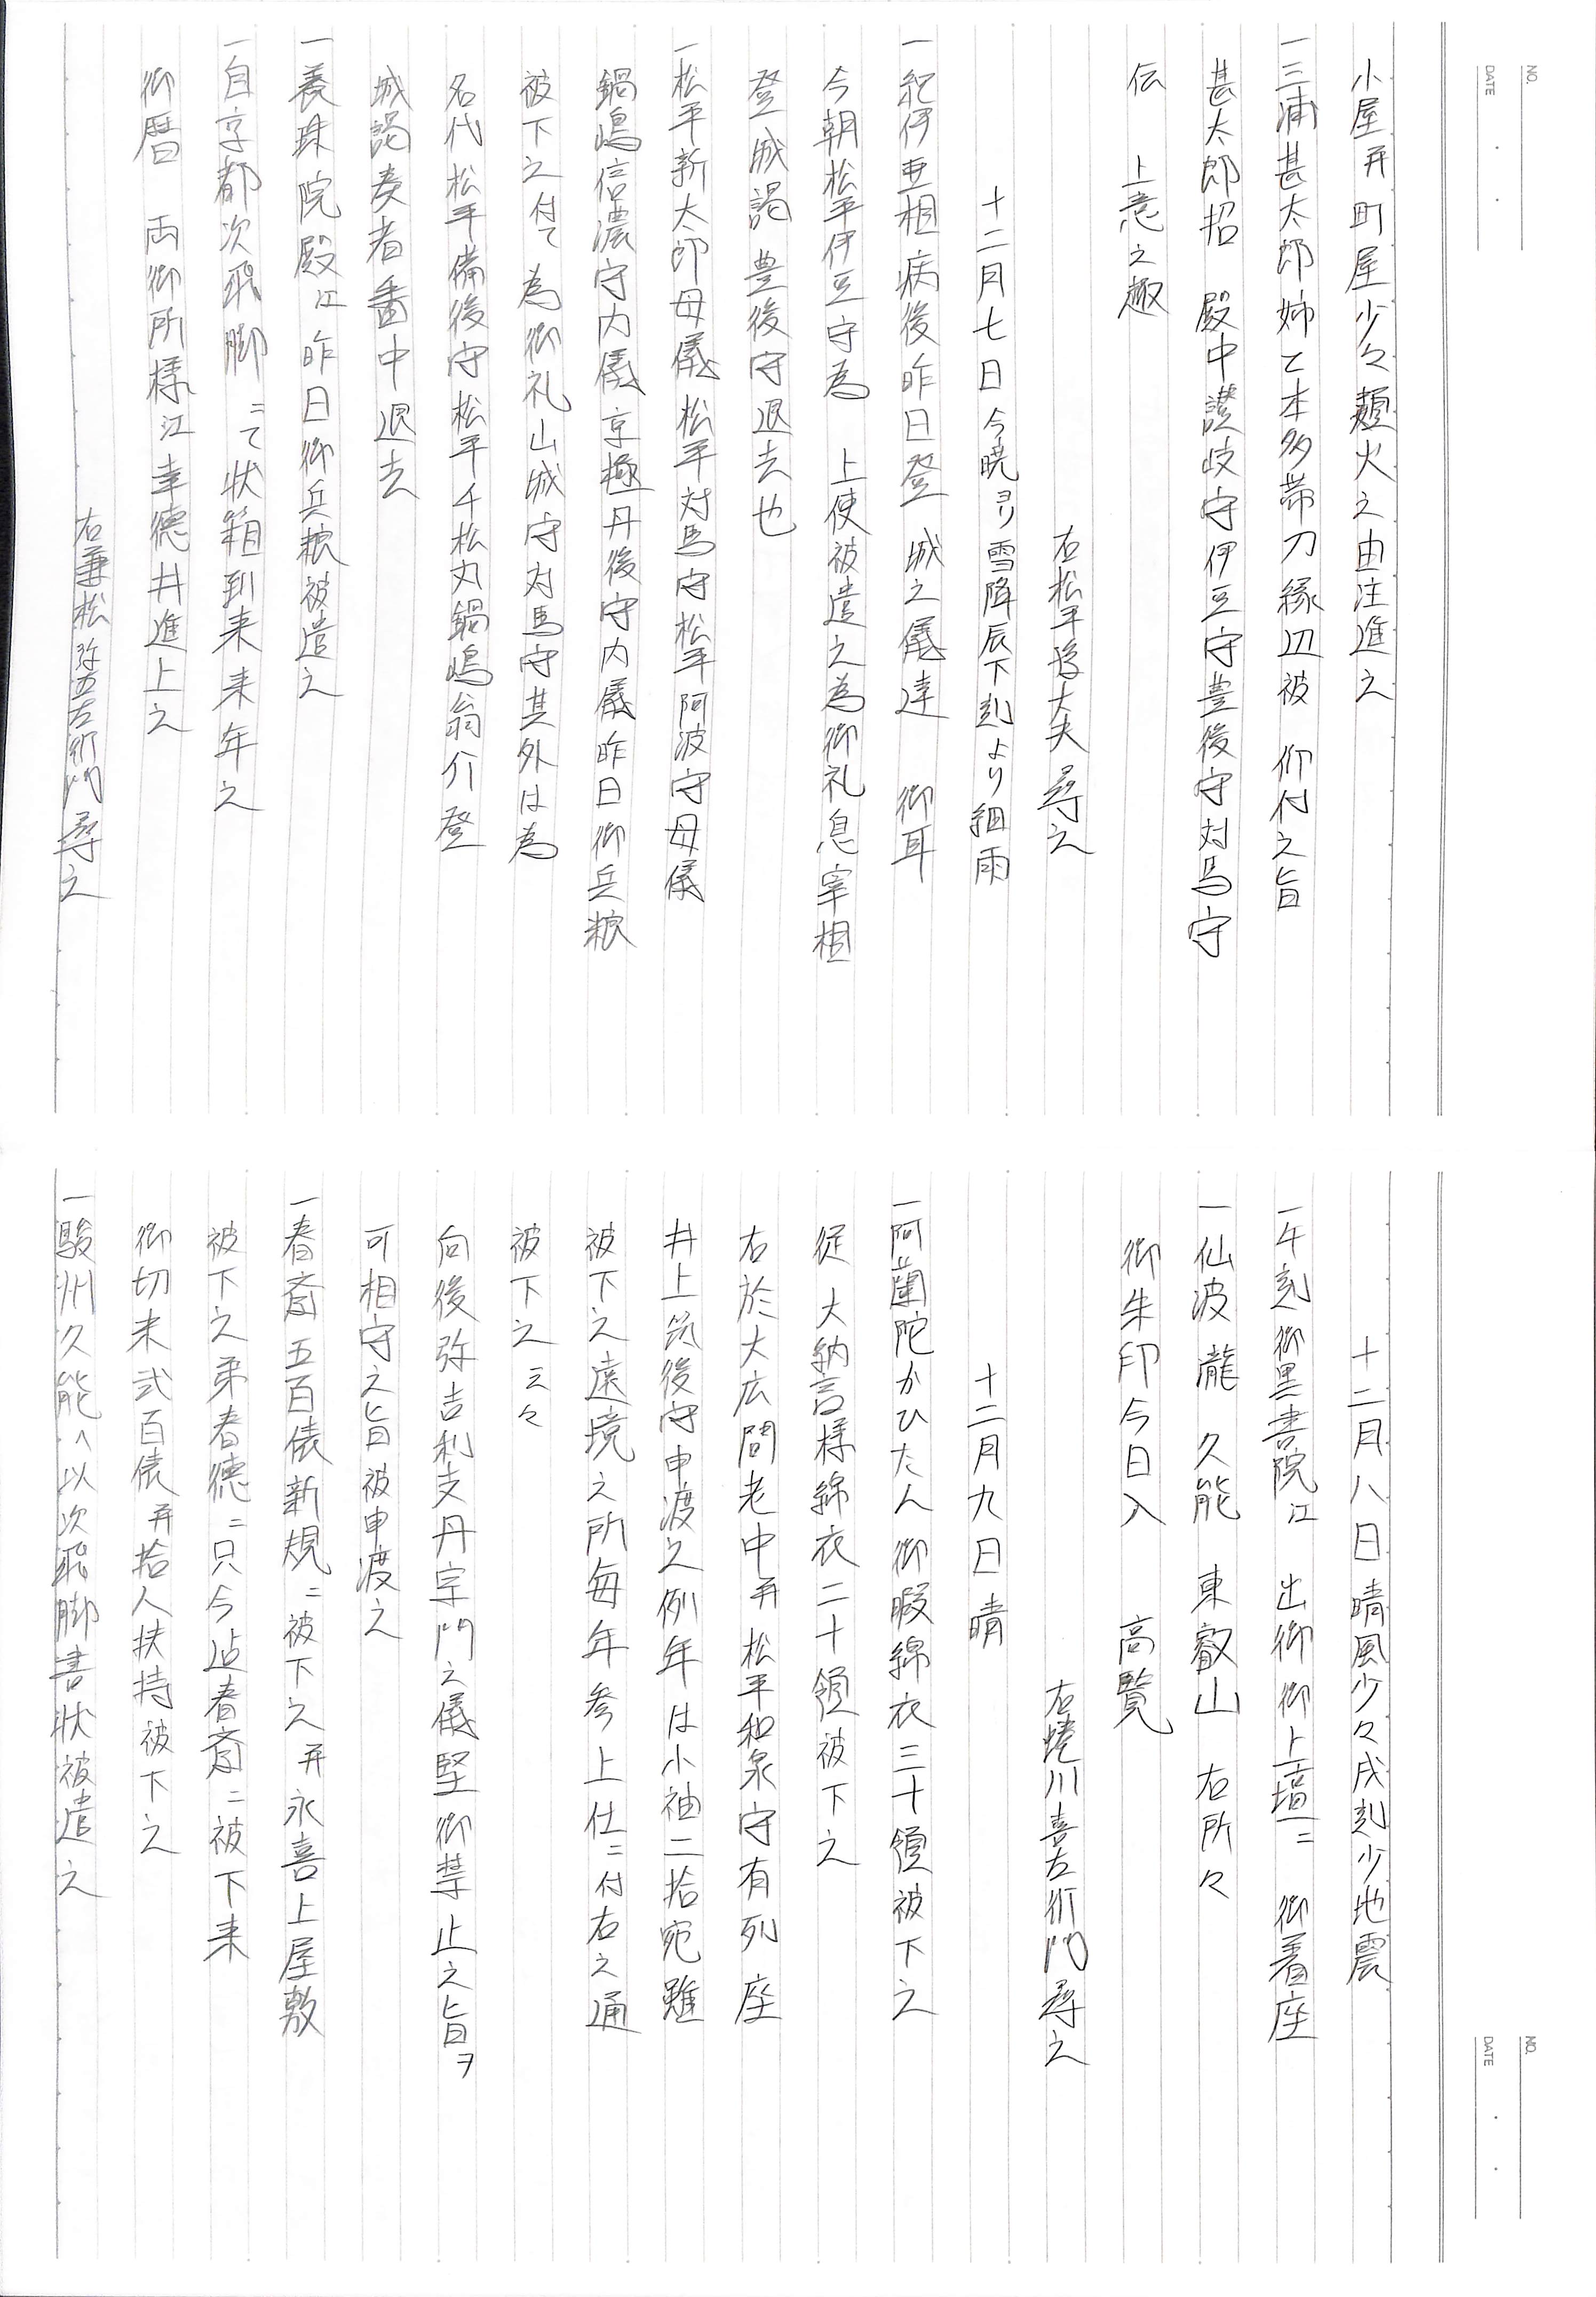 NO.
DATE
小屋并町屋少々類火之由注進之
一三浦甚太郎姉乙本多帯刀縁辺被 仰付之旨
甚太郎招 殿中讃岐守伊豆守豊後守対馬守
伝 上意之趣
右松平隼大夫尋之
十二月七日 今暁ヨリ雪降辰下刻より細雨
一紀伊亜相病後昨日登 城之儀達 御耳
今朝松平伊豆守為 上使被遣之為御礼息宰相
登城謁 豊後守退去也
一松平新太郎母儀松平対馬守松平阿波守母儀
鍋嶋信濃守内儀京極丹後守内儀昨日御兵粮
被下之付て為御礼山城守対馬守其外は為
名代松平備後守松平千松丸鍋嶋翁介登
城謁奏者番中退去
一養珠院殿江昨日御兵粮被遣之
一自京都次飛脚ニて状箱到来来年之
御暦 両御所様江幸徳井進上之
右兼松弥五左衛門尋之
NO.
DATE
十二月八日晴風少々戌刻少地震
一午刻御黒書院江 出御御上壇ニ 御着座
一仙波 瀧 久能 東叡山 右所々
御朱印今日入 高覧
右蜷川喜左衛門尋之
十二月九日 晴
一阿蘭陀かひたん御暇綿衣三十領被下之
従 大納言様綿衣二十領被下之
右於大広間老中并松平和泉守有列座
井上筑後守申渡之例年は小袖二拾宛雖
被下之遠境之所毎年参上仕ニ付右之通
被下之云々
向後弥吉利支丹宗門之儀堅御禁止之旨ヲ
可相守之旨被申渡之
一春斎五百俵新規ニ被下之并永喜上屋敷
被下之弟春徳ニ只今迠春斎ニ被下来
御切米弐百俵并拾人扶持被下之
一駿州久能へ以次飛脚書状被遣之